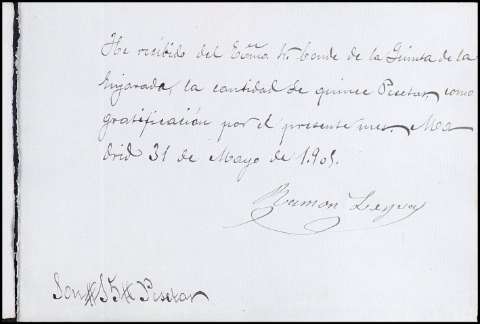 He recibido del Exmo Sr. Conde de la Quinta de la
Enjarada, la cantidad de quince Pesetas, como
gratificación por el presente mes. Ma
drid 31 de Mayo de 1.901.
Ramon
Son #15# Pesetas